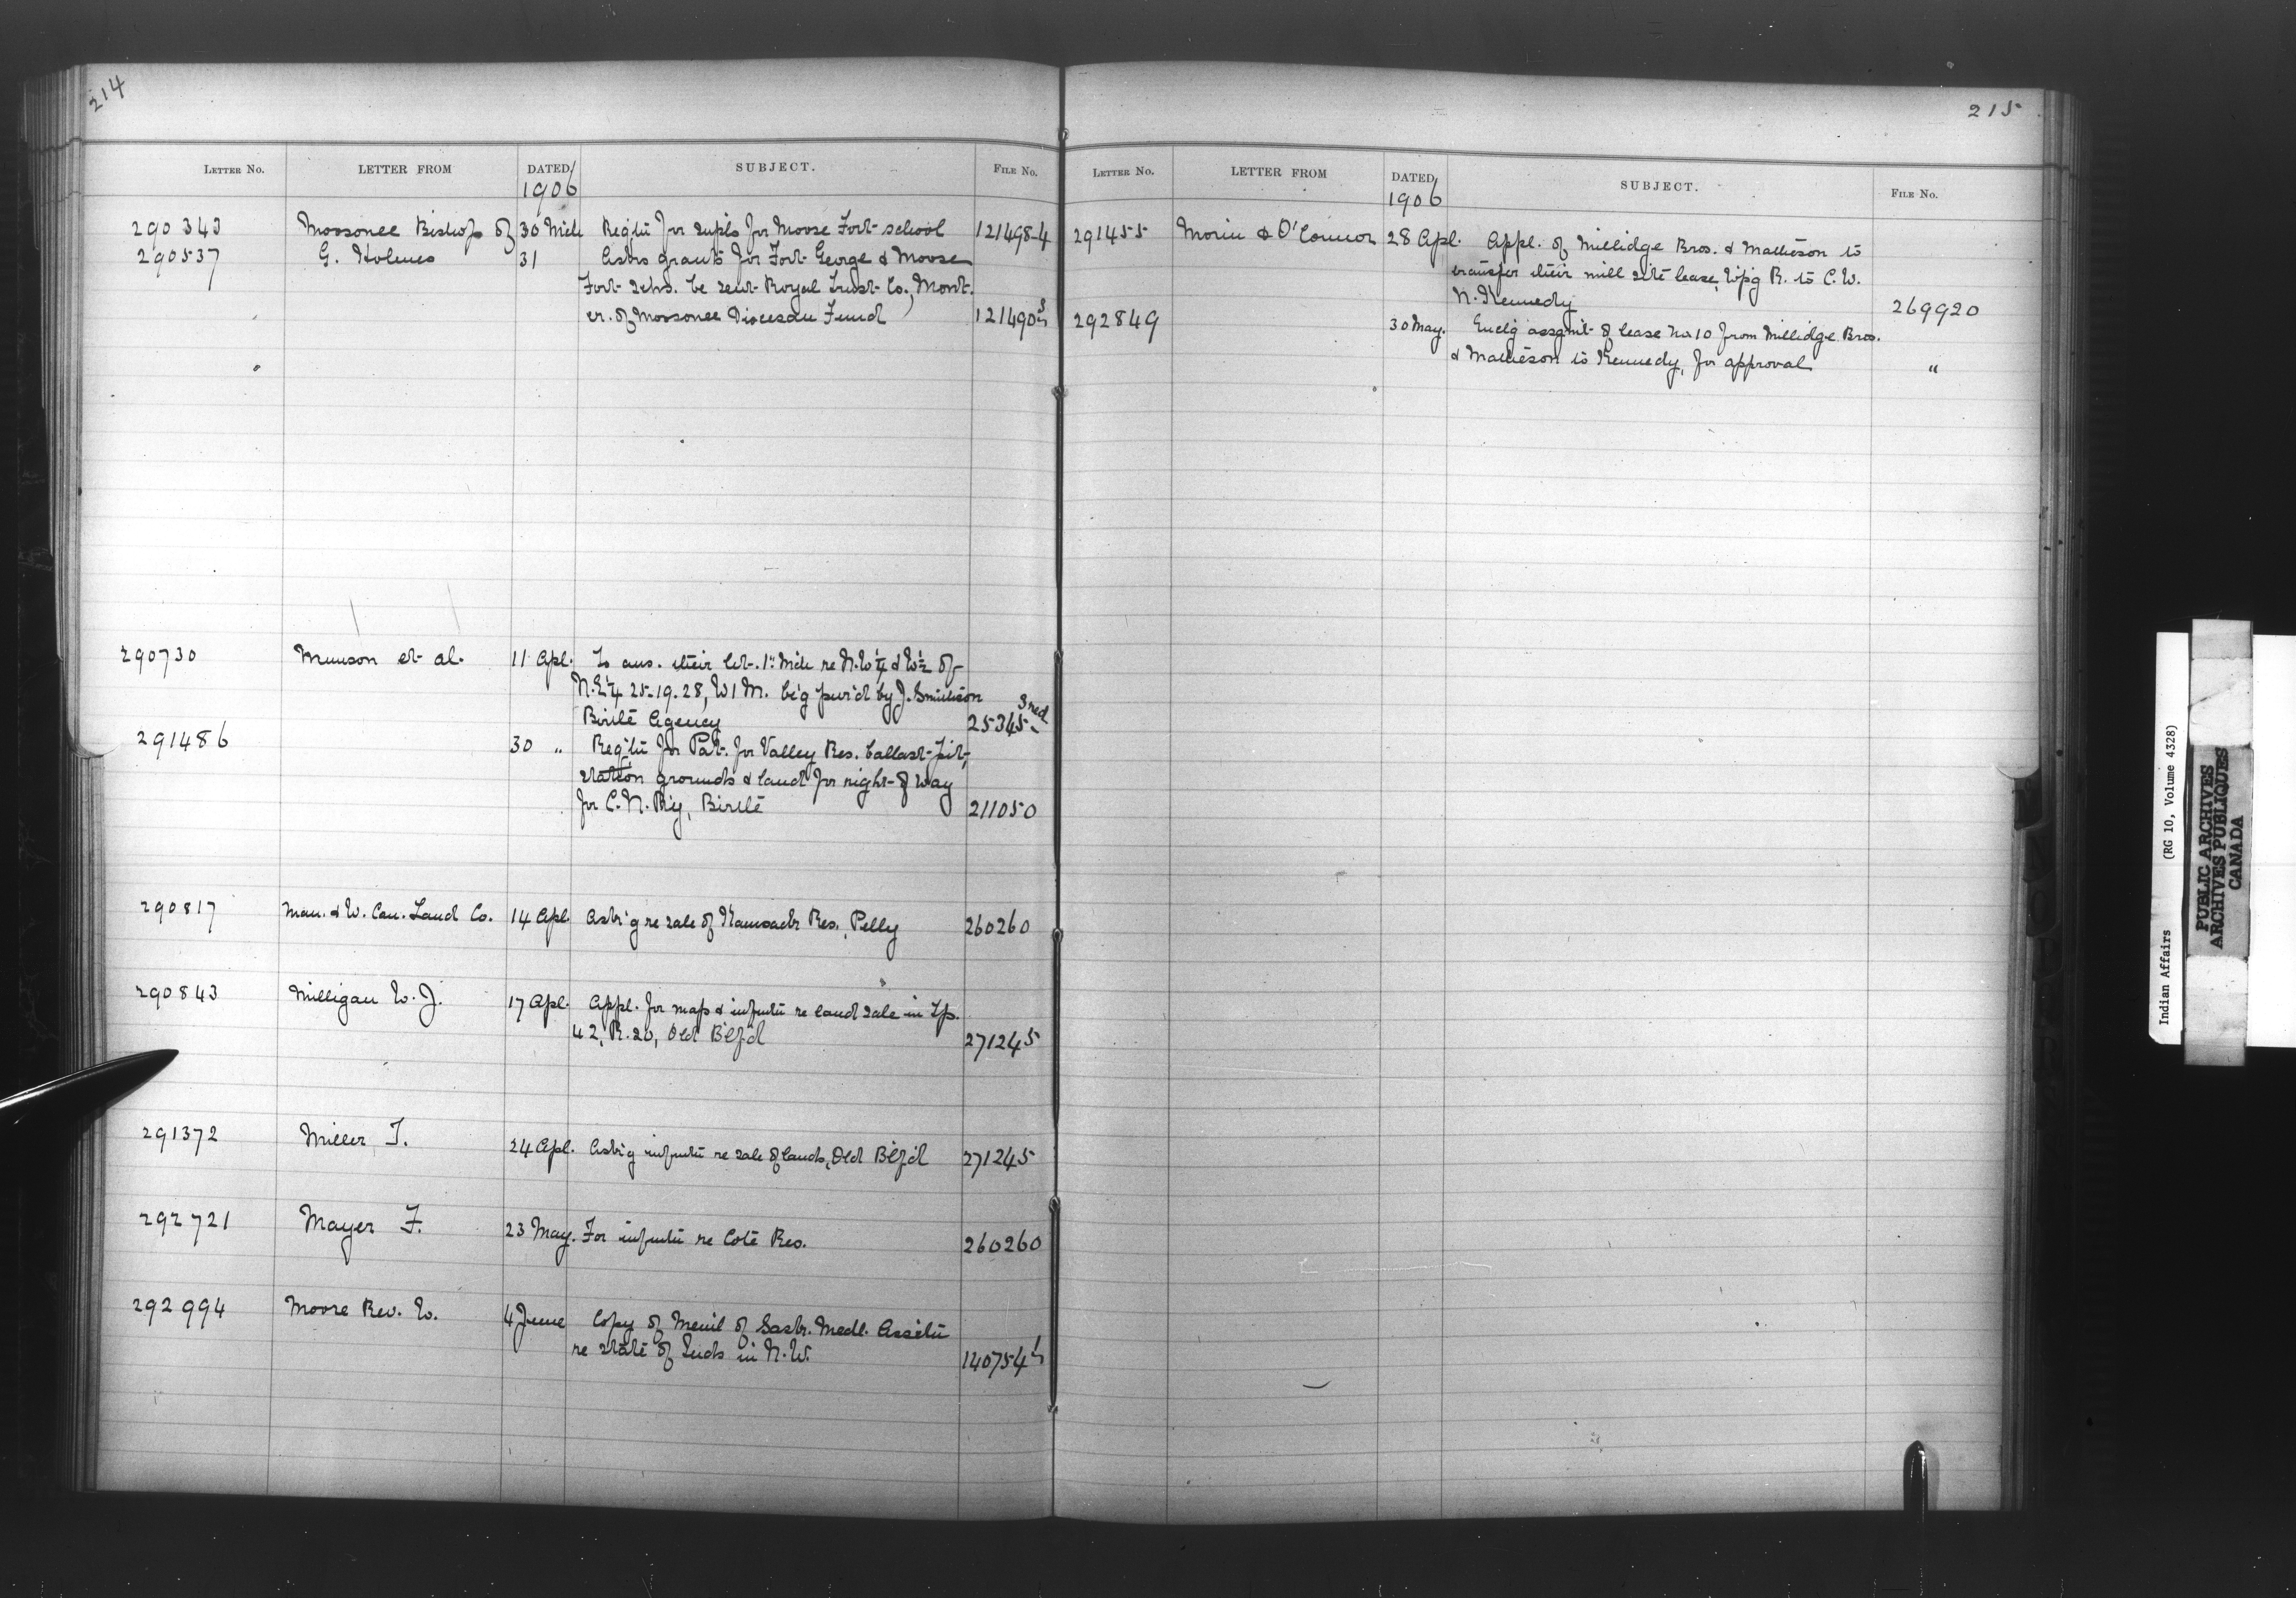 214
LETTER NO. LETTER FROM DATED SUBJECT. FILE NO.
1906
290343 Moosonee Bishop of 30 Mch Reqt'n for supls for Moose Fort school 121498-4
290537 G. Holmes 31 Asks grants for Fort George & Moose
Fort schs. be sent Royal Trust Co., Mont.
cr. of Moosonee Diocesan Fund 121490
290730 Munson et al. 11 Apl. To ans. their let. 1st Mch re N.W¼ & W½ of
N.E¼ 25-19-28, W1M. be'g pur'd by J. Smithson
Birtle Agency 25345
291486 30 " Req'tn for Pat. for Valley Res. ballast-pit,
station grounds & land for right-of way
for C.N. R'y, Birtle 211050
290817 Man. & W. Can. Land Co. 14 Apl. Ask'g re sale of Kamsack Res., Pelly 260260
290843 Milligan W. J. 17 Apl. Appl. for map & infmtn re land sale in Tp.
42, R. 20, Old B'lf'd 271245
291372 Miller T. 24 Apl. Ask'g infmtn re sale of lands, Old B'lf'd 271245
292721 Mayer F. 23 May. For infmtn re Cote Res. 260260
292994 Moore Rev. W. 4 June Copy of Mem'l of Sask. Medl. Ass'tn
re state of Inds in N.W. 140754
215
LETTER NO. LETTER FROM DATED SUBJECT. FILE NO.
1906
291455 Morin & O'Connor 28 Apl. Appl. of Millidge Bros. & Matheson to
transfer their mill site lease, W'p'g R. to C. W.
N. Kennedy 269920
292849 30 May. Encl'g assgmt of lease No 10 from Millidge Bros.
& Matheson to Kennedy, for approval "
Indian Affairs (RG 10, Volume 4328)
PUBLIC ARCHIVES
ARCHIVES PUBLIQUES
CANADA